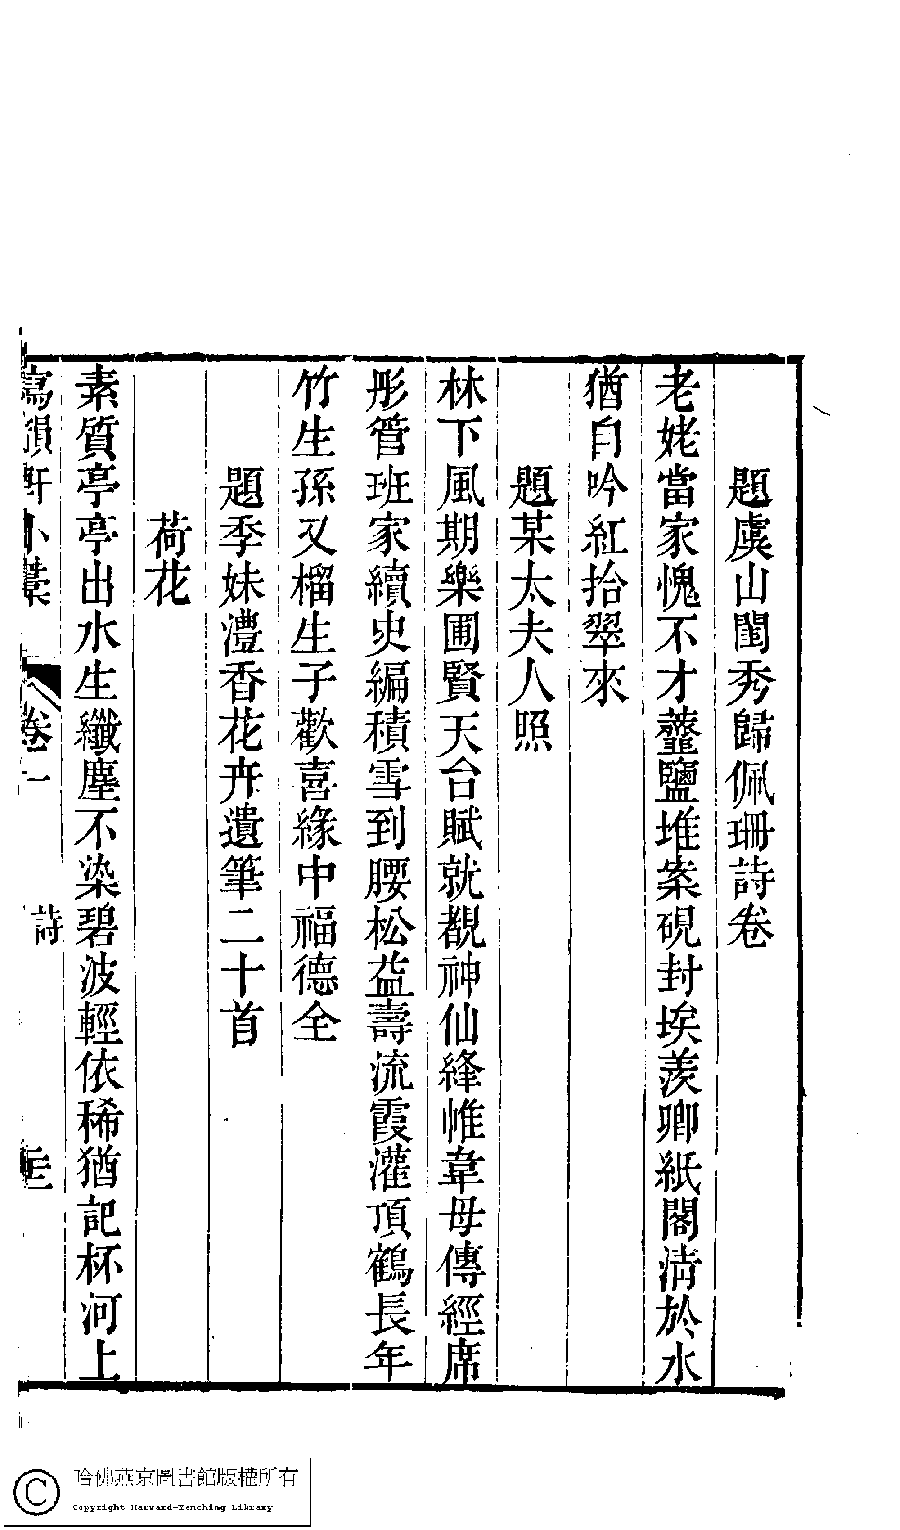 題虞山閨秀歸佩珊詩卷
老姥當家愧不才虀鹽堆案硯封埃羨卿紙閣淸於水
猶自吟紅拾翠來
題某太夫人照
林下風期樂圃賢天台賦就覩神仙絳帷韋母傳經席
彤管班家續史編積雪到腰松益壽流霞灌頂鶴長年
竹生孫又榴生子歡喜緣中福德全
題季妹澧香花卉遺筆二十首
荷花
素質亭亭出水生纖塵不染碧波輕依稀猶記杯河上
寫韻軒小藁
卷一
詩
哈佛燕京圖書館版權所有
Copyright Harvard-Yenching Library